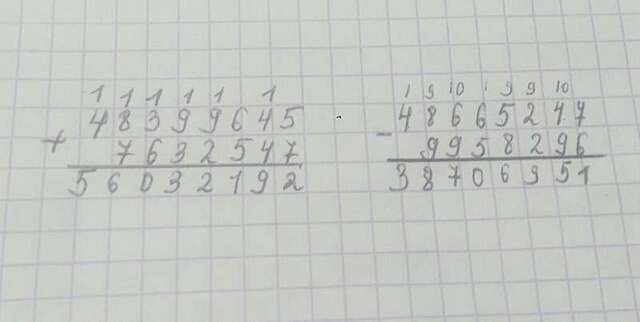 1 1 1 1 1 1
48399645
+ 7632547
56032192
1 9 10 1 9 9 10
48665247
- 9958296
38706951